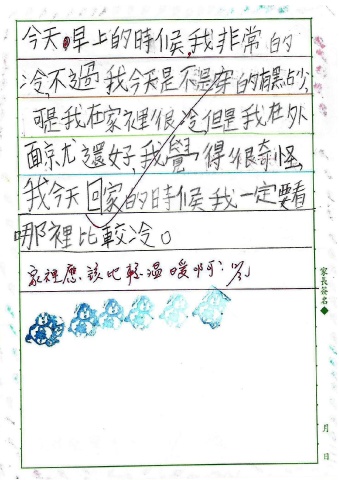 今天早上的時候,我非常的
冷,不過我今天是不是穿的有點少,
可是我在家裡很冷,但是我在外
面就還好,我覺得很奇怪,
我今天回家的時候我一定要看
哪裡比較冷。
家裡應該比較溫暖啊!
家長簽名
月
日